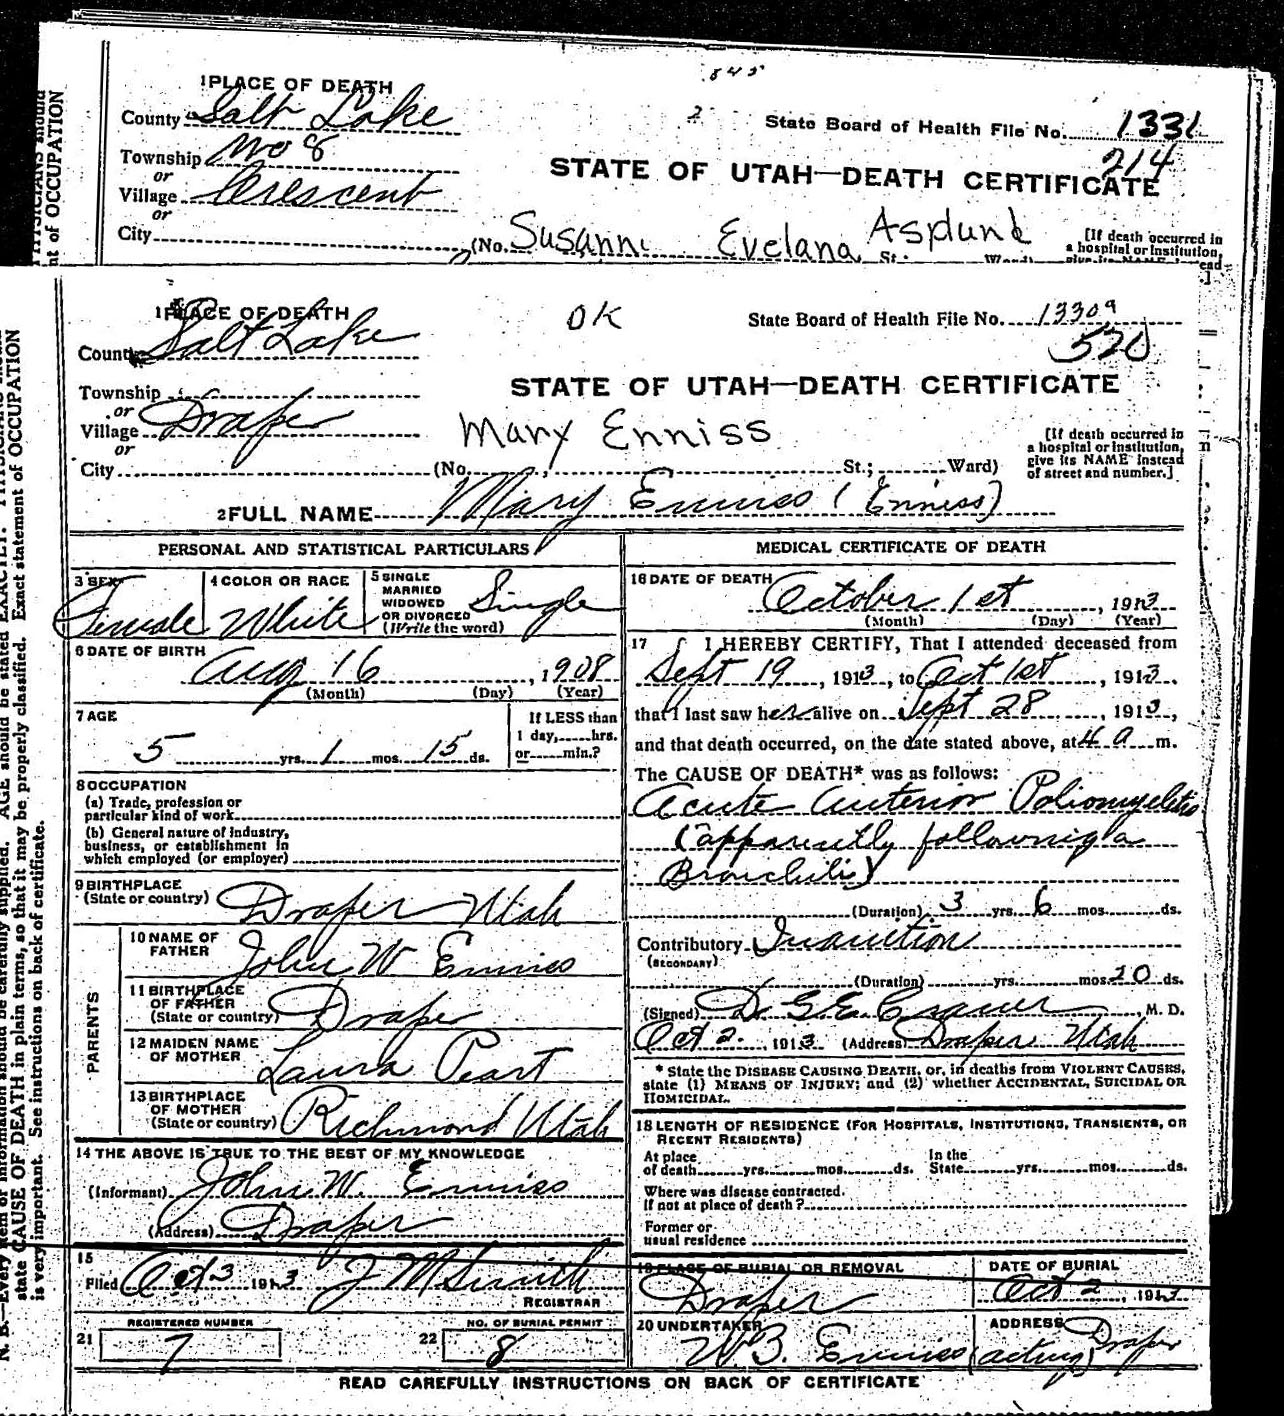 845
1 PLACE OF DEATH
County Salt Lake
2
State Board of Health File No. 1331
214
Township No 8
or
Village Crescent
or
City
STATE OF UTAH—DEATH CERTIFICATE
(No. Susann Evelana Asplund St. Ward)
[If death occurred in
a hospital or institution,
give its NAME instead
PHYSICIANS should
nt of OCCUPATION
1 PLACE OF DEATH
County Salt Lake
OK
State Board of Health File No. 1330a
520
STATE OF UTAH—DEATH CERTIFICATE
Township
or
Village Draper
or
City
Mary Enniss
(No. St.; Ward)
[If death occurred in
a hospital or institution,
give its NAME instead
of street and number.]
2 FULL NAME Mary Enniss (Enniss)
PERSONAL AND STATISTICAL PARTICULARS
3 SEX Female
4 COLOR OR RACE White
5 SINGLE
MARRIED
WIDOWED
OR DIVORCED
(Write the word)
Single
6 DATE OF BIRTH
Aug 16, 1908
(Month) (Day) (Year)
7 AGE
5 yrs. 1 mos. 15 ds.
If LESS than
1 day, hrs.
or min.?
8 OCCUPATION
(a) Trade, profession or
particular kind of work
(b) General nature of industry,
business, or establishment in
which employed (or employer)
9 BIRTHPLACE
(State or country) Draper Utah
PARENTS
10 NAME OF
FATHER John W Enniss
11 BIRTHPLACE
OF FATHER
(State or country) Draper
12 MAIDEN NAME
OF MOTHER Laura Peart
13 BIRTHPLACE
OF MOTHER
(State or country) Richmond Utah
14 THE ABOVE IS TRUE TO THE BEST OF MY KNOWLEDGE
(Informant) John W. Enniss
(Address) Draper
15
Filed Oct 3 1913 J M Smith
REGISTRAR
REGISTERED NUMBER
21 7
NO. OF BURIAL PERMIT
22 8
MEDICAL CERTIFICATE OF DEATH
16 DATE OF DEATH
October 1st, 1913
(Month) (Day) (Year)
17 I HEREBY CERTIFY, That I attended deceased from
Sept 19, 1913, to Oct 1st, 1913,
that I last saw her alive on Sept 28, 1913,
and that death occurred, on the date stated above, at 4 a m.
The CAUSE OF DEATH* was as follows:
Acute Anterior Poliomyelitis
(apparently following a
Bronchitis)
(Duration) 3 yrs. 6 mos. ds.
Contributory Inanition
(SECONDARY)
(Duration) yrs. mos. 20 ds.
(Signed) Dr G.E. M. D.
Oct 2. 1913 (Address) Draper Utah
* State the DISEASE CAUSING DEATH, or, in deaths from VIOLENT CAUSES,
state (1) MEANS OF INJURY; and (2) whether ACCIDENTAL, SUICIDAL OR
HOMICIDAL.
18 LENGTH OF RESIDENCE (FOR HOSPITALS, INSTITUTIONS, TRANSIENTS, OR
RECENT RESIDENTS)
At place
of death yrs. mos. ds.
In the
State yrs. mos. ds.
Where was disease contracted.
If not at place of death?
Former or
usual residence
19 PLACE OF BURIAL OR REMOVAL
Draper
DATE OF BURIAL
Oct 2, 1913
20 UNDERTAKER
W.B. Enniss (acting)
ADDRESS
Draper
READ CAREFULLY INSTRUCTIONS ON BACK OF CERTIFICATE
N. B.—Every item of information should be carefully supplied. AGE should be stated EXACTLY. PHYSICIANS should
state CAUSE OF DEATH in plain terms, so that it may be properly classified. Exact statement of OCCUPATION
is very important. See instructions on back of certificate.